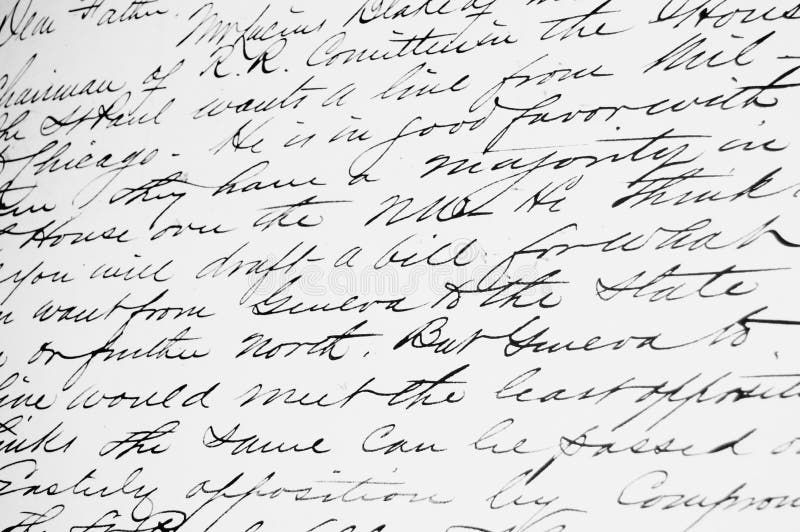 Dear Father. Mr Lucius Blake of
Chairman of R.R. Comittee in the House
The St Paul wants a line from Mil-
Chicago- He is in good favor with
They have a majority in
House over the NW- He think
you will draft a bill for what
want from Geneva to the State
or further north. But Geneva to
line would meet the least oppositi
inks the same can be passed o
Easterly opposition by Comprom
dreamstime